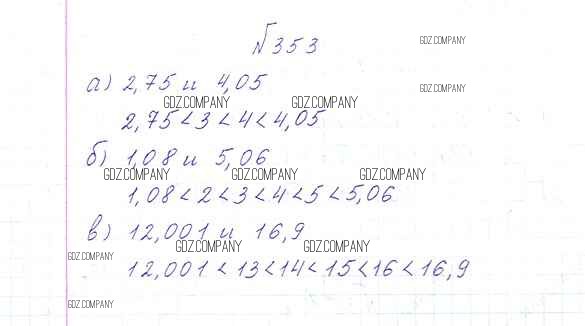 №353
GDZ.COMPANY
а) 2,75 и 4,05
GDZ.COMPANY
GDZ.COMPANY GDZ.COMPANY
2,75 < 3 < 4 < 4,05
б) 1,08 и 5,06
GDZ.COMPANY GDZ.COMPANY GDZ.COMPANY
1,08 < 2 < 3 < 4 < 5 < 5,06
в) 12,001 и 16,9
GDZ.COMPANY GDZ.COMPANY
GDZ.COMPANY
12,001 < 13 < 14 < 15 < 16 < 16,9
GDZ.COMPANY